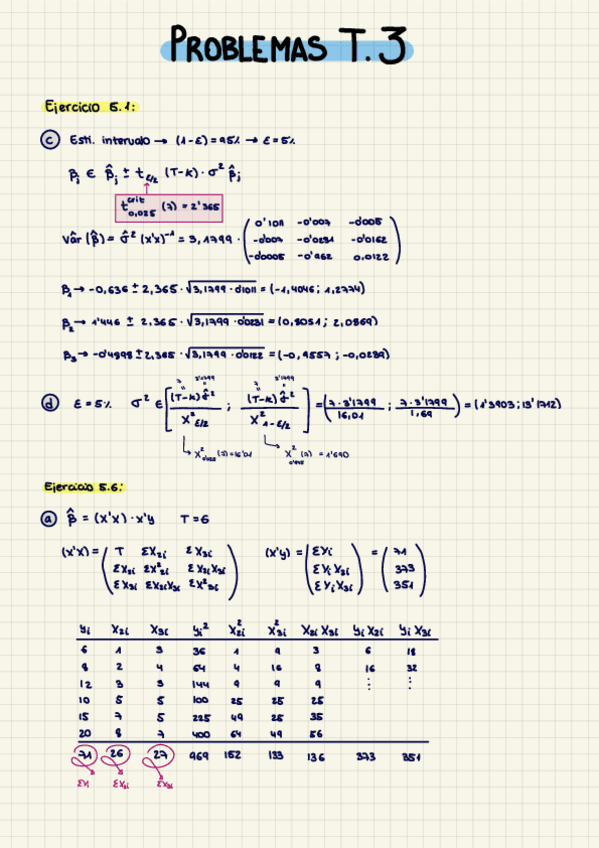 PROBLEMAS T.3
Ejercicio 5.1:
c Esti. intervalo → (1-ε) = 95% → ε = 5%
βj ∈ β̂j ± t ε/2 (T-K) · σ² β̂j
t crit 0,025 (7) = 2'365
Vâr (β̂) = σ̂² (x'x)⁻¹ = 3,1799 · ( 0'1011 -0'007 -0'005
-0'007 -0'0231 -0'0162
-0'0005 -0'462 0,0122 )
β1 → -0,636 ± 2,365 · √3,1799 · 0'1011 = (-1,4046; 1,2774)
β2 → 1'446 ± 2,365 · √3,1799 · 0'0231 = (0,8051; 2,0869)
β3 → -0'4998 ± 2,365 · √3,1799 · 0'0122 = (-0,9557; -0,0239)
7 3'1799 7 3'1799
d ε = 5% σ² ∈ [ (T-K) σ̂² / X² ε/2 ; (T-K) σ̂² / X² 1-ε/2 ] = ( 7 · 3'1799 / 16,01 ; 7 · 3'1799 / 1,69 ) = (1'3903; 13'1712)
X² 0'025 (7) = 16'01 X² 0'975 (7) = 1'690
Ejercicio 5.6:
a β̂ = (x'x) · x'y T = 6
(x'x) = ( T ΣX2i ΣX3i
ΣX2i ΣX²2i ΣX2iX3i
ΣX3i ΣX2iX3i ΣX²3i )
(x'y) = ( ΣYi
ΣYi X2i
ΣYi X3i ) = ( 71
373
351 )
yi X2i X3i yi² X²2i X²3i X2i X3i yi X2i yi X3i
6 1 3 36 1 9 3 6 18
8 2 4 64 4 16 8 16 32
12 3 3 144 9 9 9 ⋮ ⋮
10 5 5 100 25 25 25
15 7 5 225 49 25 35
20 8 7 400 64 49 56
71 26 27 969 152 133 136 373 351
ΣYi ΣX2i ΣX3i